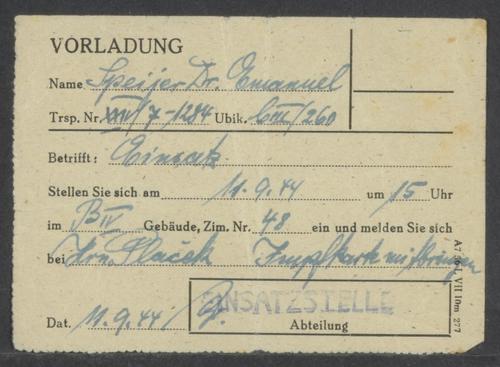 VORLADUNG
Name Speijer Dr. Emanuel
Trsp. Nr. XXIV/7-1284 Ubik. CIII/260
Betrifft: Einsatz
Stellen Sie sich am 11.9.44 um 15 Uhr
im BIV Gebäude, Zim. Nr. 48 ein und melden Sie sich
bei Hrn. Plaček Impfkarte mitbringen
EINSATZSTELLE
Dat. 11.9.44 Abteilung
A7 56-L VII 10m 277